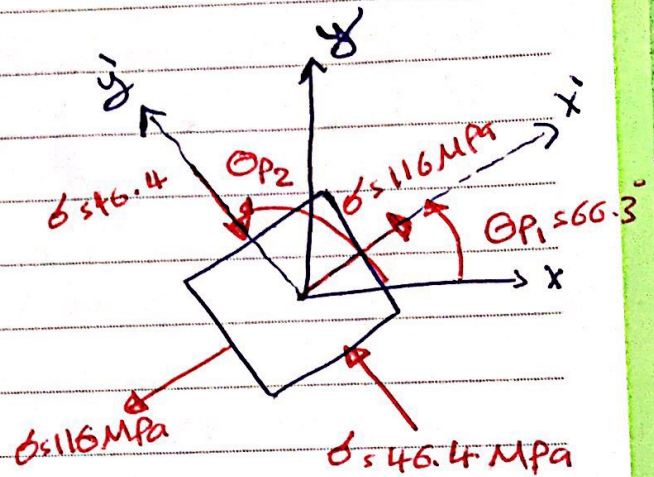 y
y'
x'
σ = 46.4
θP2
σ = 116 MPa
θP1 = 66.3°
x
σ = 116 MPa
σ = 46.4 MPa